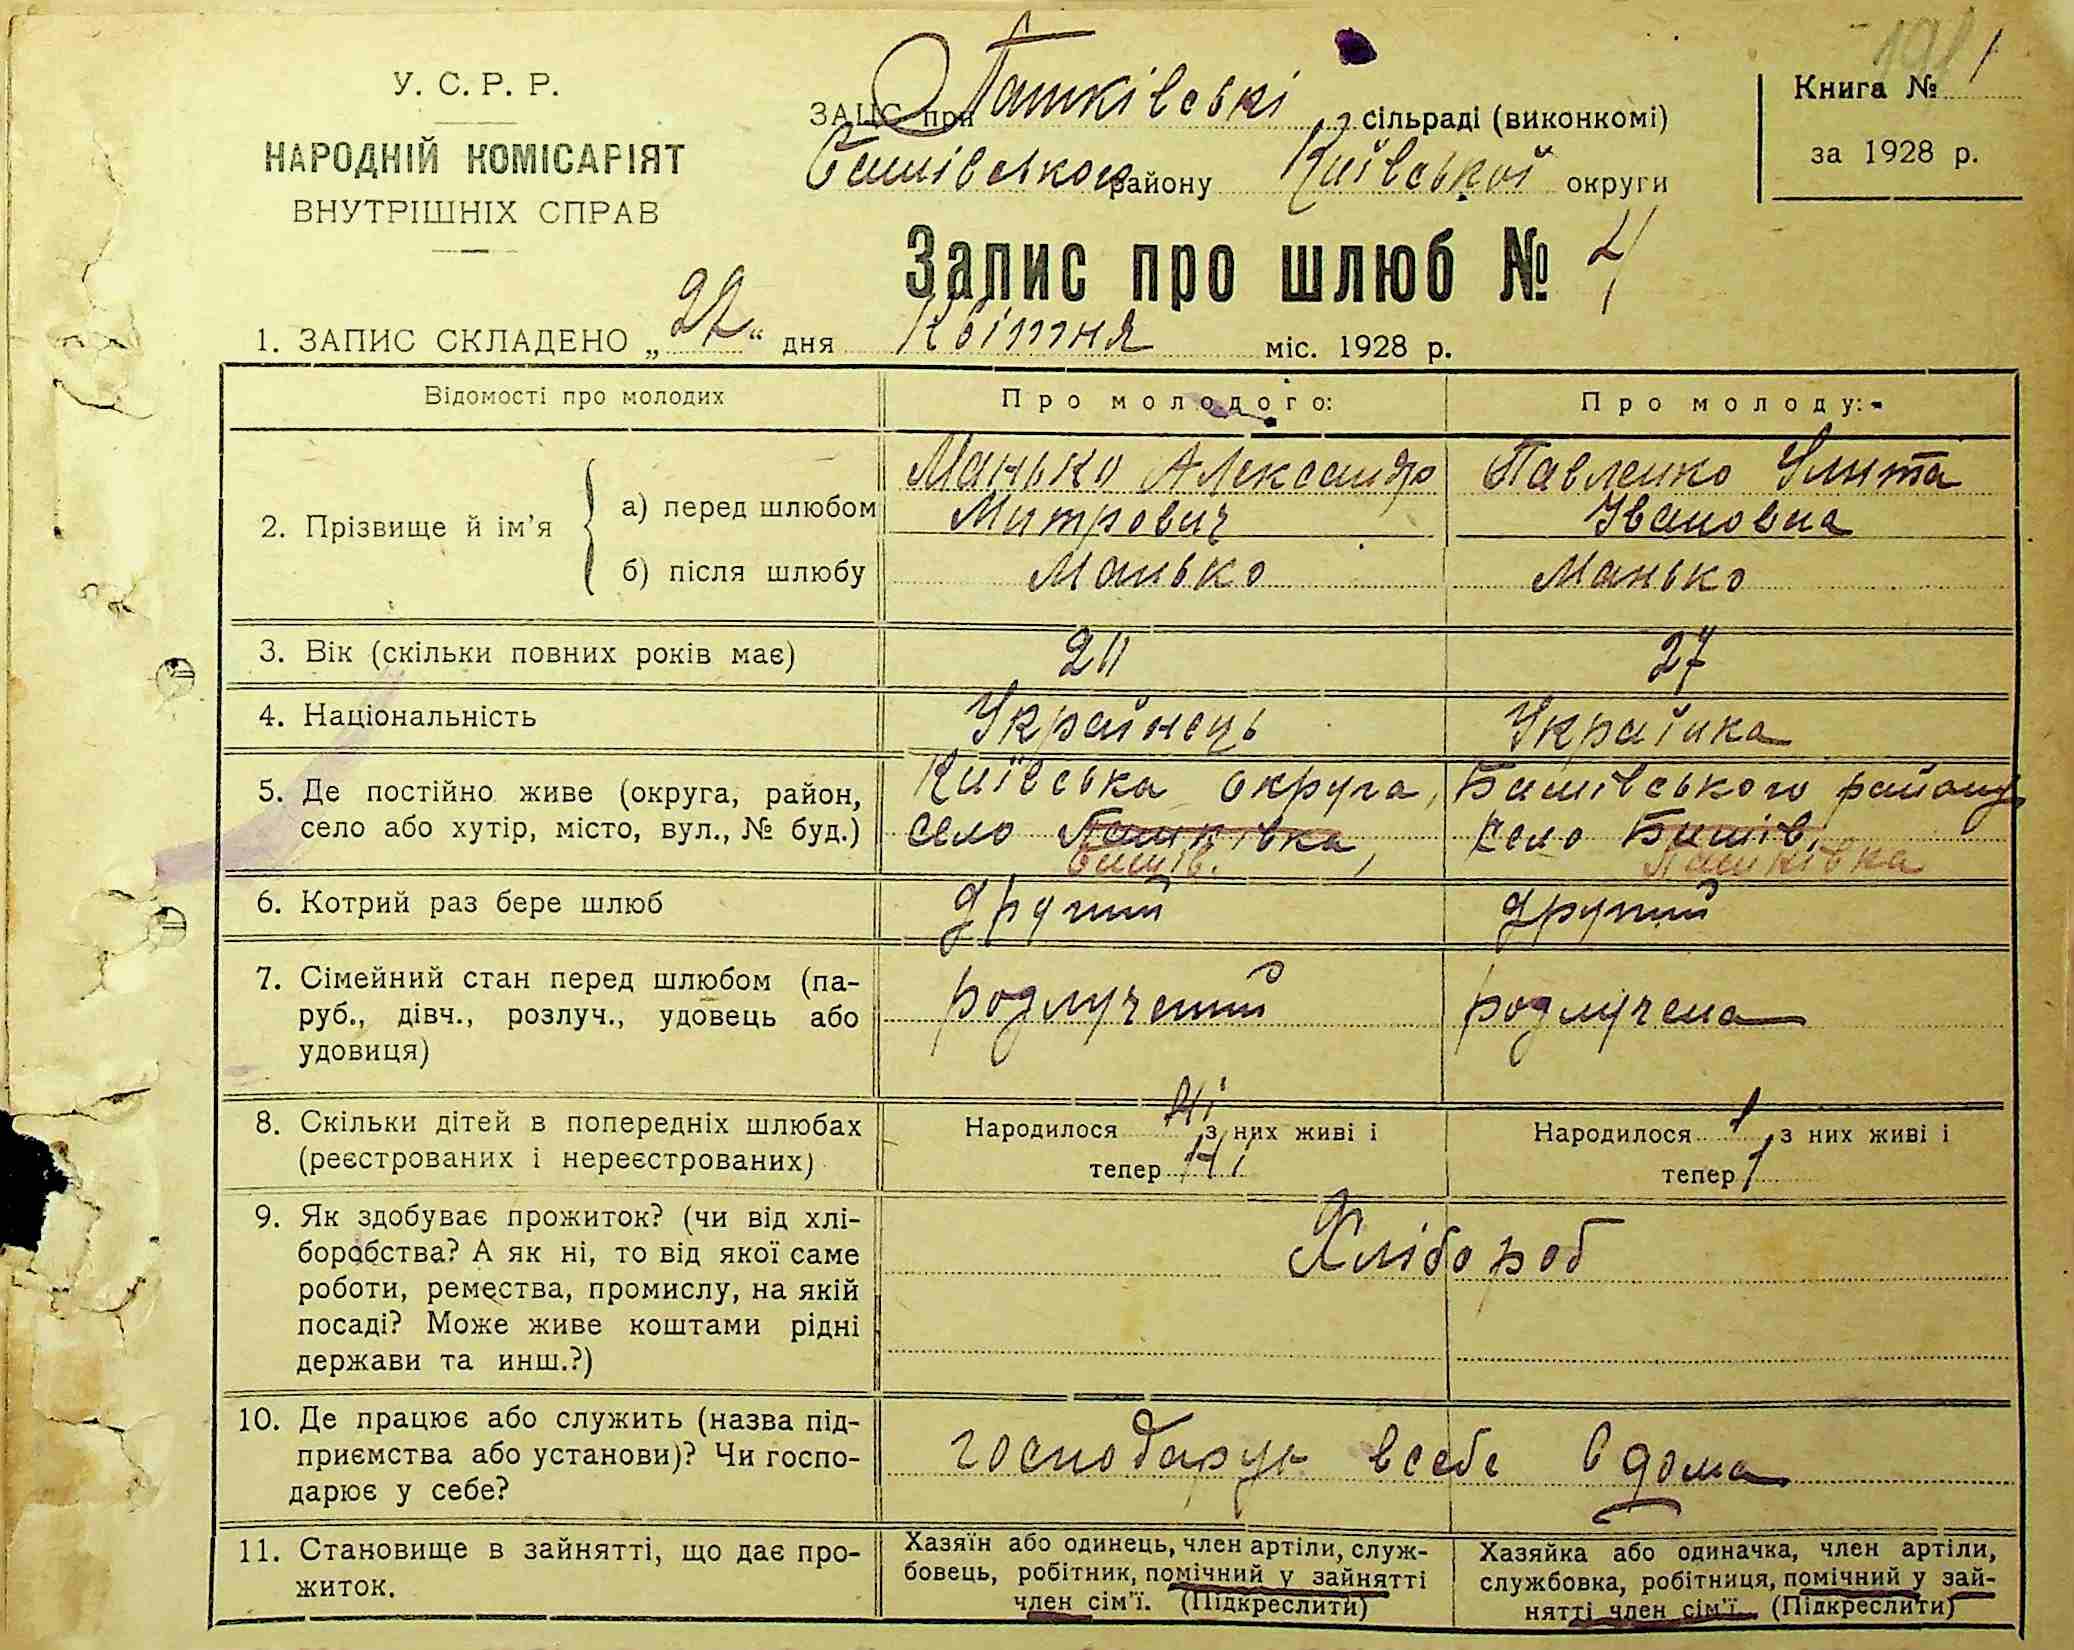 У. С. Р. Р.
НАРОДНІЙ КОМІСАРІЯТ
ВНУТРІШНІХ СПРАВ
ЗАЦС при Пашківські сільраді (виконкомі)
Бишівського району Київської округи
Книга № 1
за 1928 р.
Запис про шлюб № 4
1. ЗАПИС СКЛАДЕНО „22“ дня Квітня міс. 1928 р.
Відомості про молодих
Про молодого:
Про молоду:
2. Прізвище й ім'я
а) перед шлюбом
Манько Александр
Митрович
Павленко
Івановна
б) після шлюбу
Манько
Манько
3. Вік (скільки повних років має)
27
4. Національність
Українець
Українка
5. Де постійно живе (округа, район,
село або хутір, місто, вул., № буд.)
Київська округа,
село Пашківка,
Бишів.
Бишівського району
село Бишів,
Пашківка
6. Котрий раз бере шлюб
другий
другий
7. Сімейний стан перед шлюбом (па-
руб., дівч., розлуч., удовець або
удовиця)
розлучений
розлучена
8. Скільки дітей в попередніх шлюбах
(реєстрованих і нереєстрованих)
Народилося Ні з них живі і
тепер Ні
Народилося 1 з них живі і
тепер 1
9. Як здобуває прожиток? (чи від хлі-
боробства? А як ні, то від якої саме
роботи, ремества, промислу, на якій
посаді? Може живе коштами рідні
держави та инш.?)
Хлібороб
10. Де працює або служить (назва під-
приємства або установи)? Чи госпо-
дарює у себе?
господарує в себе в дома
11. Становище в зайнятті, що дає про-
житок.
Хазяїн або одинець, член артіли, служ-
бовець, робітник, помічний у зайнятті
член сім'ї. (Підкреслити)
Хазяйка або одиначка, член артіли,
службовка, робітниця, помічний у зай-
нятті член сім'ї. (Підкреслити)